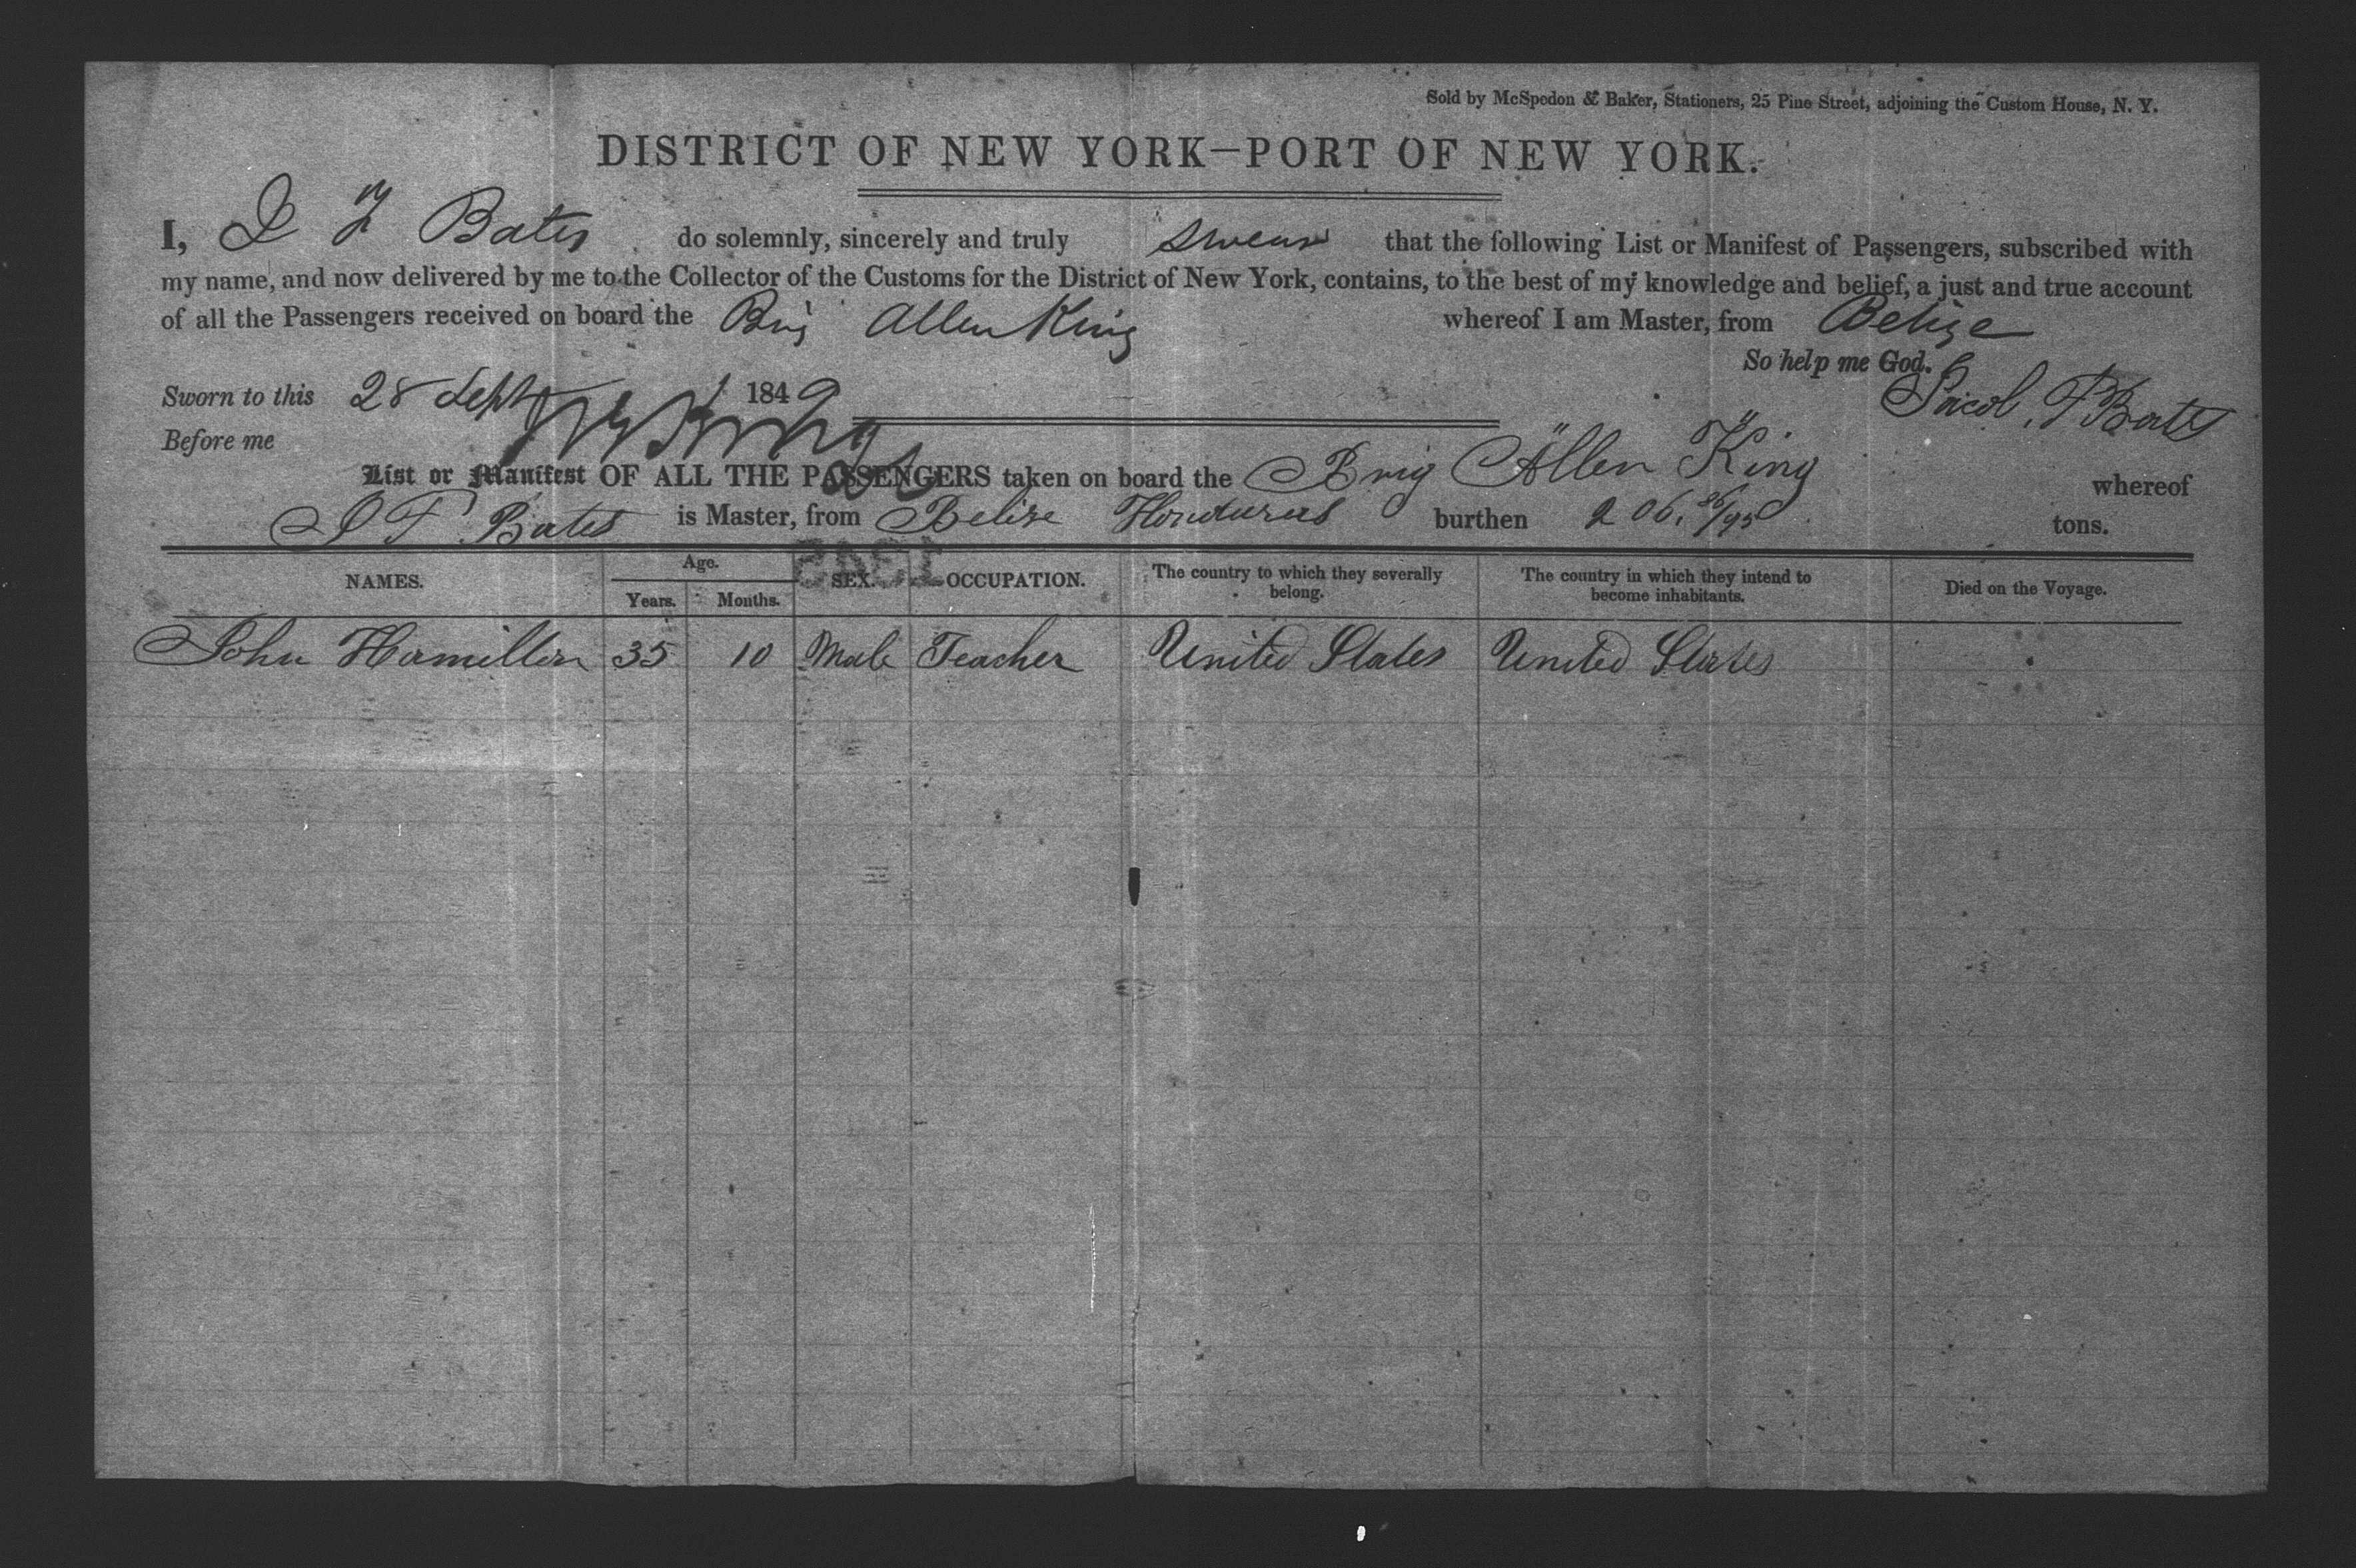 Sold by McSpedon & Baker, Stationers, 25 Pine Street, adjoining the Custom House, N. Y.
DISTRICT OF NEW YORK—PORT OF NEW YORK.
I, J F Bates do solemnly, sincerely and truly swear that the following List or Manifest of Passengers, subscribed with
my name, and now delivered by me to the Collector of the Customs for the District of New York, contains, to the best of my knowledge and belief, a just and true account
of all the Passengers received on board the Brig Allen King whereof I am Master, from Belize
So help me God.
Sworn to this 28 Sept 1849 Jacob F Bates
Before me
List or Manifest OF ALL THE PASSENGERS taken on board the Brig Allen King whereof
J F Bates is Master, from Belize Honduras burthen 206. 86/95 tons.
NAMES. Age. Years. Months. SEX. OCCUPATION. The country to which they severally belong. The country in which they intend to become inhabitants. Died on the Voyage.
John Hamilton 35 10 Male Teacher United States United States